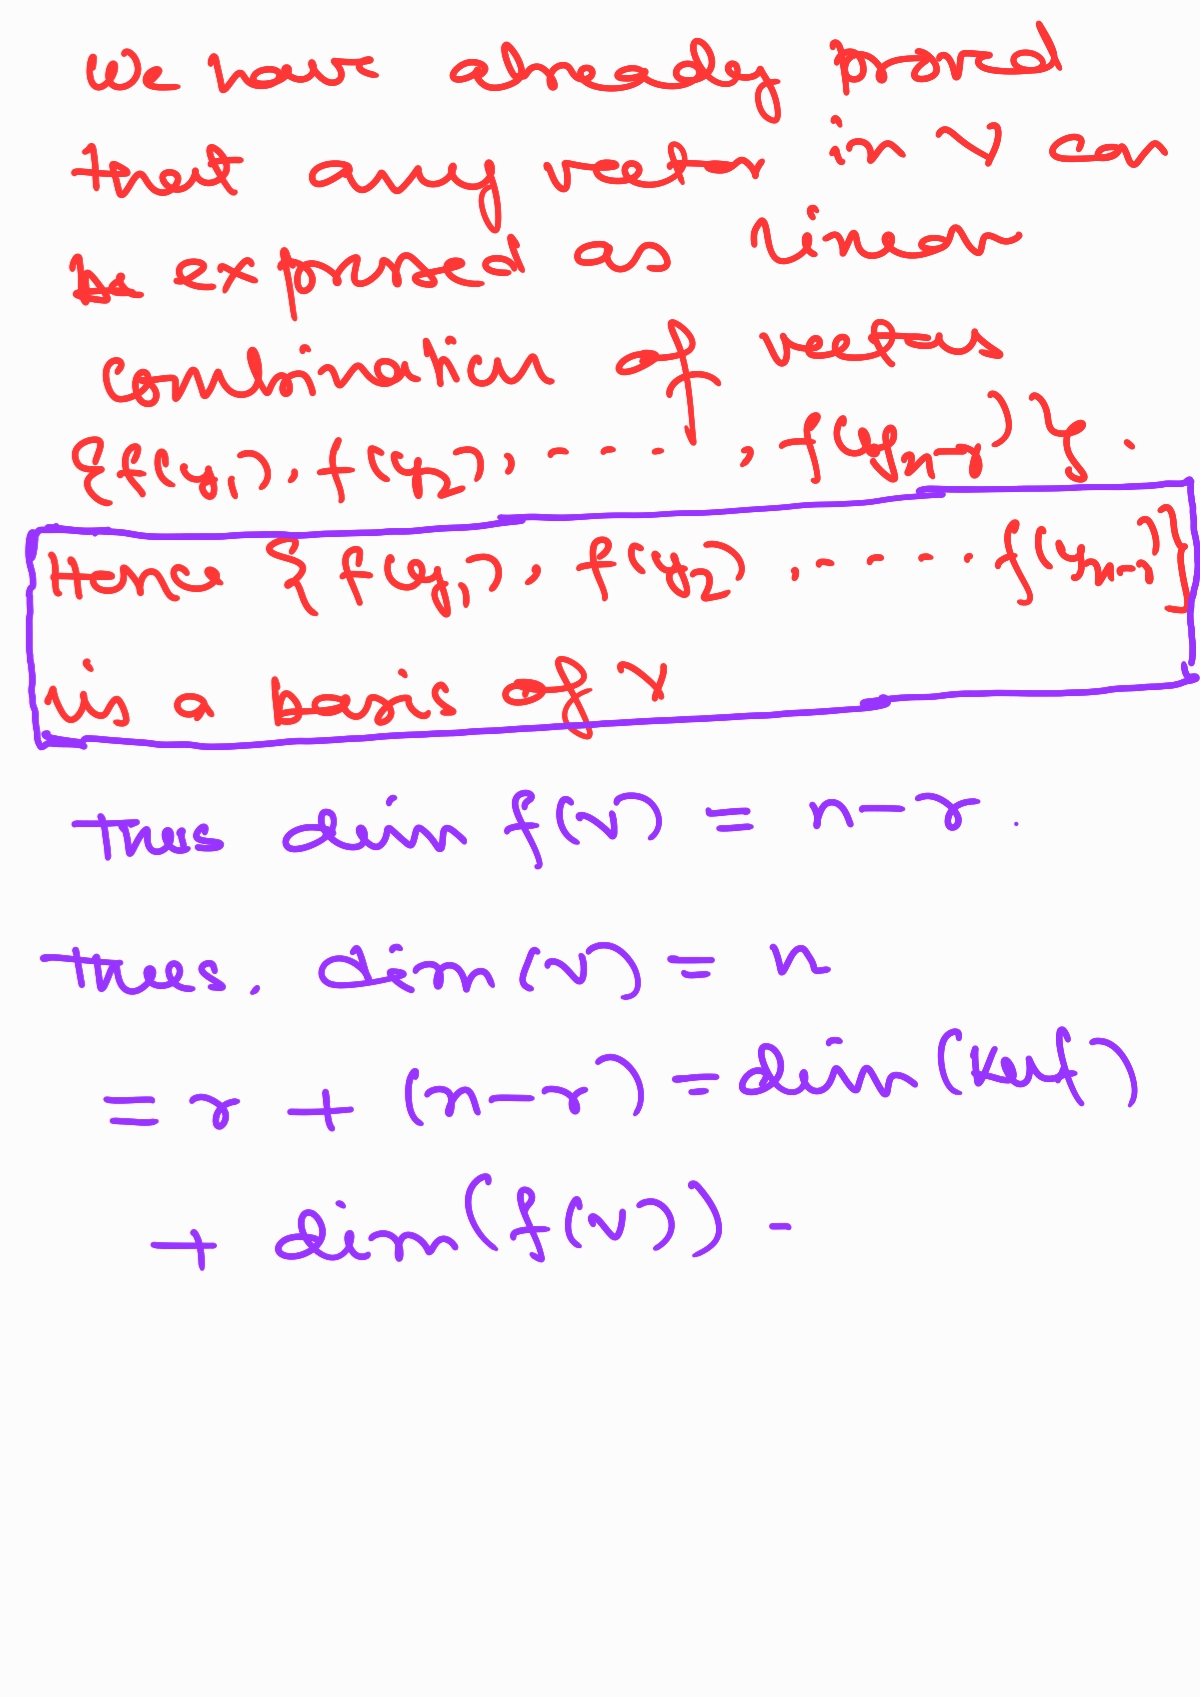 We have already proved
that any vector in V can
be expressed as linear
combination of vectors
{f(y₁), f(y₂), ....., f(yₙ₋ᵣ)}.
Hence {f(y₁), f(y₂), ..... f(yₙ₋ᵣ)}
is a basis of V
Thus dim f(V) = n-r.
Thus. dim (V) = n
= r + (n-r) = dim (Kerf)
+ dim (f(V)) -